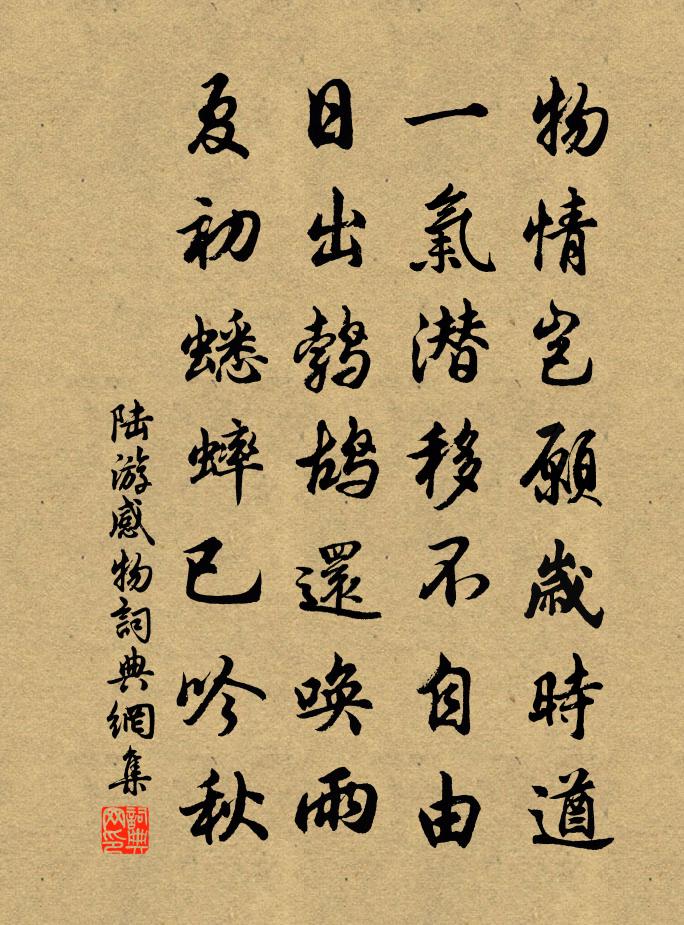 物情岂願歲時遒
一氣潜移不自由
日出鹁鴣還唤雨
夏初蟋蟀已吟秋
陆游感物詞典網集
詞典網印